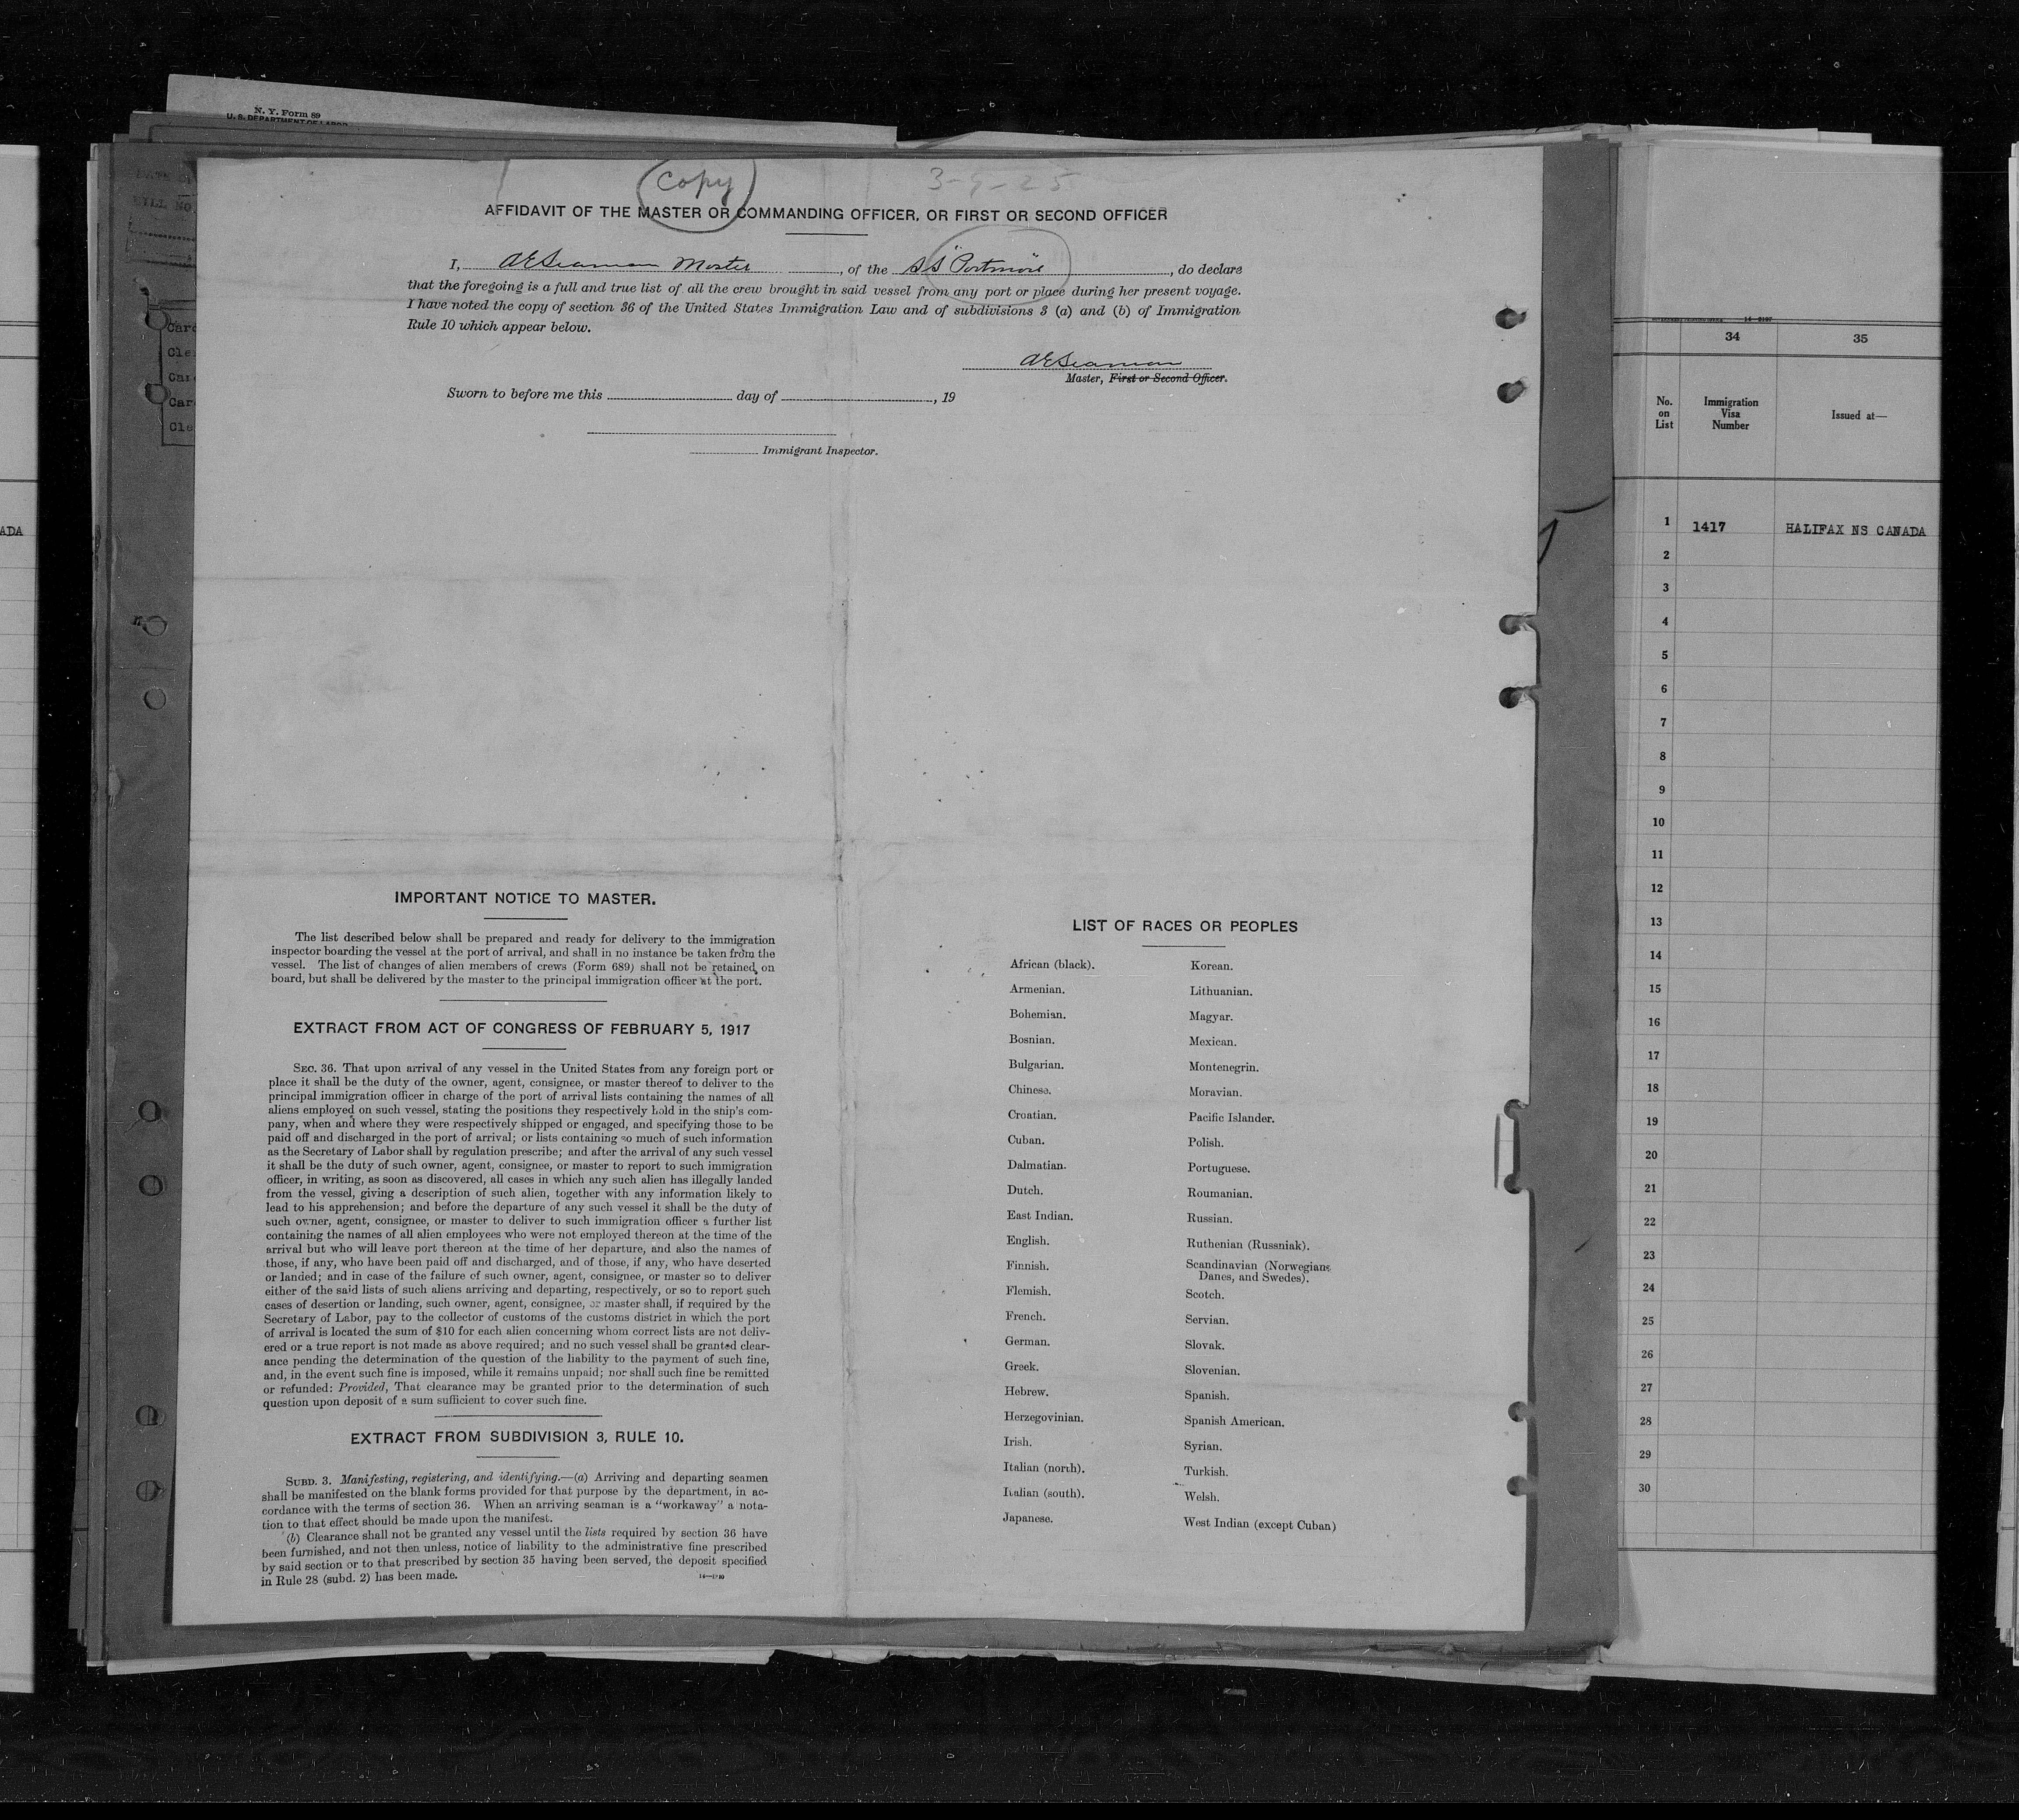 N. Y. Form 89
U. S. DEPARTMENT OF LABOR
Copy
AFFIDAVIT OF THE MASTER OR COMMANDING OFFICER, OR FIRST OR SECOND OFFICER
I, A E Seaman Master, of the SS "Portmore", do declare
that the foregoing is a full and true list of all the crew brought in said vessel from any port or place during her present voyage.
I have noted the copy of section 36 of the United States Immigration Law and of subdivisions 3 (a) and (b) of Immigration
Rule 10 which appear below.
A E Seaman
Master, First or Second Officer.
Sworn to before me this day of , 19
Immigrant Inspector.
IMPORTANT NOTICE TO MASTER.
The list described below shall be prepared and ready for delivery to the immigration
inspector boarding the vessel at the port of arrival, and shall in no instance be taken from the
vessel. The list of changes of alien members of crews (Form 689) shall not be retained on
board, but shall be delivered by the master to the principal immigration officer at the port.
EXTRACT FROM ACT OF CONGRESS OF FEBRUARY 5, 1917
SEC. 36. That upon arrival of any vessel in the United States from any foreign port or
place it shall be the duty of the owner, agent, consignee, or master thereof to deliver to the
principal immigration officer in charge of the port of arrival lists containing the names of all
aliens employed on such vessel, stating the positions they respectively hold in the ship's com-
pany, when and where they were respectively shipped or engaged, and specifying those to be
paid off and discharged in the port of arrival; or lists containing so much of such information
as the Secretary of Labor shall by regulation prescribe; and after the arrival of any such vessel
it shall be the duty of such owner, agent, consignee, or master to report to such immigration
officer, in writing, as soon as discovered, all cases in which any such alien has illegally landed
from the vessel, giving a description of such alien, together with any information likely to
lead to his apprehension; and before the departure of any such vessel it shall be the duty of
such owner, agent, consignee, or master to deliver to such immigration officer a further list
containing the names of all alien employees who were not employed thereon at the time of the
arrival but who will leave port thereon at the time of her departure, and also the names of
those, if any, who have been paid off and discharged, and of those, if any, who have deserted
or landed; and in case of the failure of such owner, agent, consignee, or master so to deliver
either of the said lists of such aliens arriving and departing, respectively, or so to report such
cases of desertion or landing, such owner, agent, consignee, or master shall, if required by the
Secretary of Labor, pay to the collector of customs of the customs district in which the port
of arrival is located the sum of $10 for each alien concerning whom correct lists are not deliv-
ered or a true report is not made as above required; and no such vessel shall be granted clear-
ance pending the determination of the question of the liability to the payment of such fine,
and, in the event such fine is imposed, while it remains unpaid; nor shall such fine be remitted
or refunded: Provided, That clearance may be granted prior to the determination of such
question upon deposit of a sum sufficient to cover such fine.
EXTRACT FROM SUBDIVISION 3, RULE 10.
SUBD. 3. Manifesting, registering, and identifying.—(a) Arriving and departing seamen
shall be manifested on the blank forms provided for that purpose by the department, in ac-
cordance with the terms of section 36. When an arriving seaman is a "workaway" a nota-
tion to that effect should be made upon the manifest.
(b) Clearance shall not be granted any vessel until the lists required by section 36 have
been furnished, and not then unless, notice of liability to the administrative fine prescribed
by said section or to that prescribed by section 35 having been served, the deposit specified
in Rule 28 (subd. 2) has been made.
LIST OF RACES OR PEOPLES
African (black).
Armenian.
Bohemian.
Bosnian.
Bulgarian.
Chinese.
Croatian.
Cuban.
Dalmatian.
Dutch.
East Indian.
English.
Finnish.
Flemish.
French.
German.
Greek.
Hebrew.
Herzegovinian.
Irish.
Italian (north).
Italian (south).
Japanese.
Korean.
Lithuanian.
Magyar.
Mexican.
Montenegrin.
Moravian.
Pacific Islander.
Polish.
Portuguese.
Roumanian.
Russian.
Ruthenian (Russniak).
Scandinavian (Norwegians,
Danes, and Swedes).
Scotch.
Servian.
Slovak.
Slovenian.
Spanish.
Spanish American.
Syrian.
Turkish.
Welsh.
West Indian (except Cuban)
34 35
No.
on
List
Immigration
Visa
Number
Issued at—
1 1417 HALIFAX NS CANADA
2
3
4
5
6
7
8
9
10
11
12
13
14
15
16
17
18
19
20
21
22
23
24
25
26
27
28
29
30
ADA